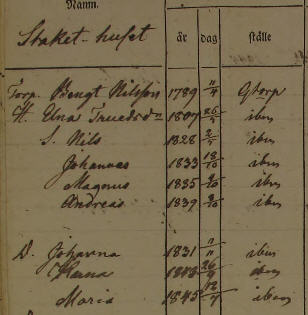 Namn.
år dag ställe
Staket-huset
Torp. Bengt Nilsson 1789 11/4 Gtorp
H. Elna Truedsd:r 1807 26/5 ibm
S. Nils 1828 2/5 ibm
Johannes 1833 18/10 ibm
Magnus 1835 9/10 ibm
Andreas 1839 9/10 ibm
D. Johanna 1831 11/11 ibm
1843 26/9 ibm
Maria 1845 12/9 ibm